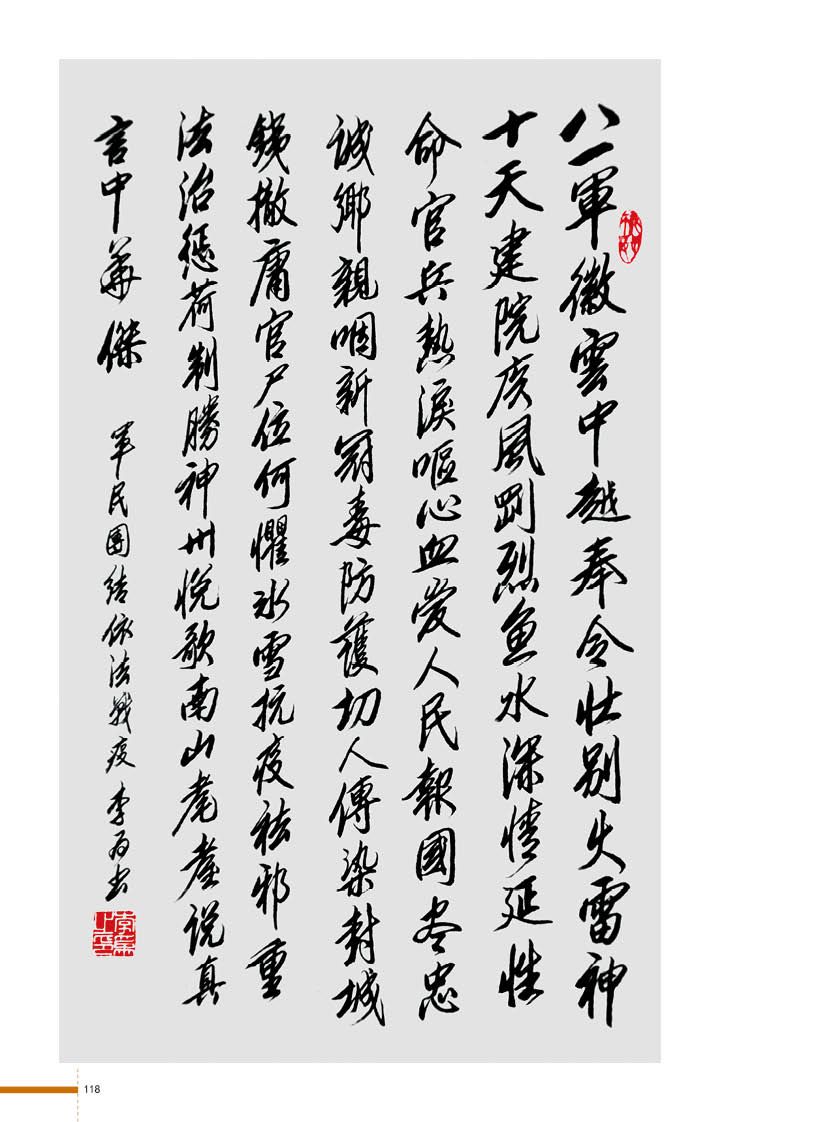 八一軍徽雲中越奉令壯别火雷神
十天建院疾風剛烈魚水深情延性
命官兵熱淚嘔心血愛人民報國盡忠
誠鄉親咽新冠毒防護切人傳染封城
銕撤庸官尸位何懼冰雪抗疫祛邪重
法治懲荷制勝神州悦歌南山耄耋说真
言中華傑
军民團结依法戰疫 李为书
118